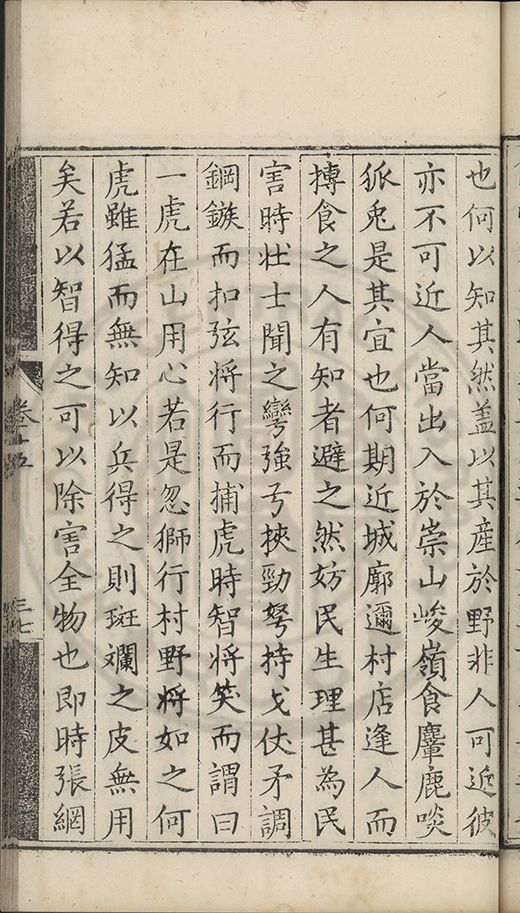 也何以知其然盖以其産於野非人可近彼
亦不可近人當出入於崇山峻嶺食麞鹿啖
狐兎是其宜也何期近城廓邇村店逢人而
搏食之人有知者避之然妨民生理甚為民
害時壮士聞之彎強弓挾勁弩持戈仗矛調
鋼鏃而扣弦将行而捕虎時智将笑而謂曰
一虎在山用心若是忽獅行村野将如之何
虎雖猛而無知以兵得之則斑斕之皮無用
矣若以智得之可以除害全物也即時張網
卷十五
三七